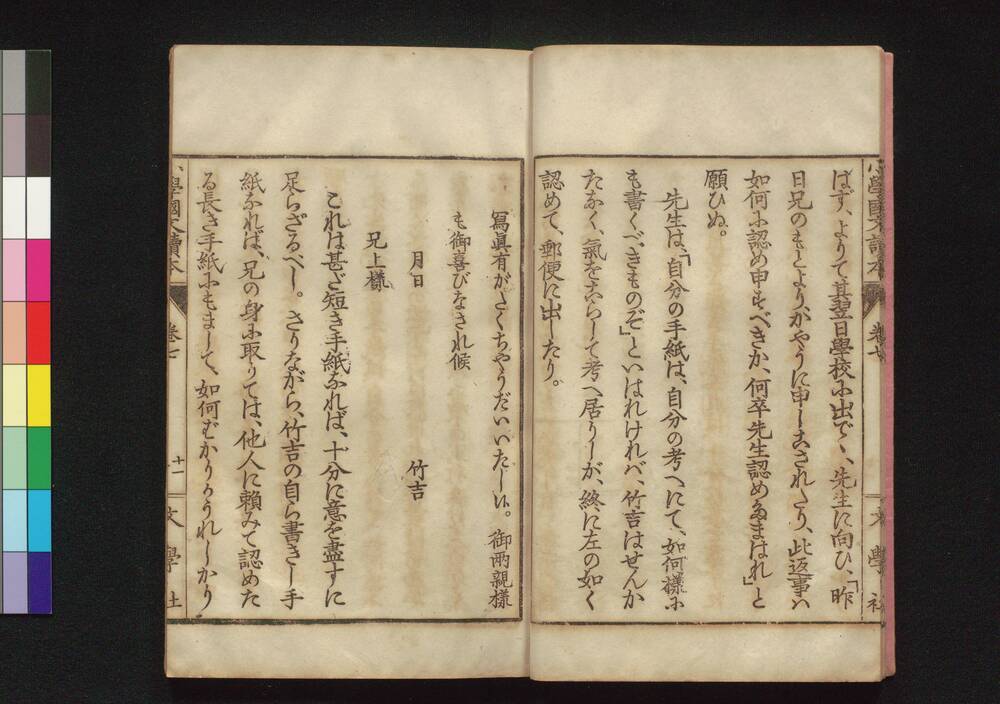 小學國文讀本
卷七
文學社
ばず、よりて其翌日學校に出でゝ、先生に向ひ、「昨
日兄のもとより、かやうに申しこされたり、此返事は
如何に認め申すべきか、何卒先生認めたまはれ」と
願ひぬ。
先生は、「自分の手紙は、自分の考へにて、如何樣に
も書くべきものぞ」といはれければ、竹吉はせんか
たなく、氣をこらして考へ居りしが、終に左の如く
認めて、郵便に出したり。
寫眞有がたくちやうだいいたし候。御兩親樣
も御喜びなされ候
月日
竹吉
兄上樣
これは甚だ短き手紙なれば、十分に意を盡すに
足らざるべし。さりながら、竹吉の自ら書きし手
紙なれば、兄の身に取りては、他人に賴みて認めた
る長き手紙にもまして、如何ばかりうれしかり
小學國文讀本
卷七
十一
文學社